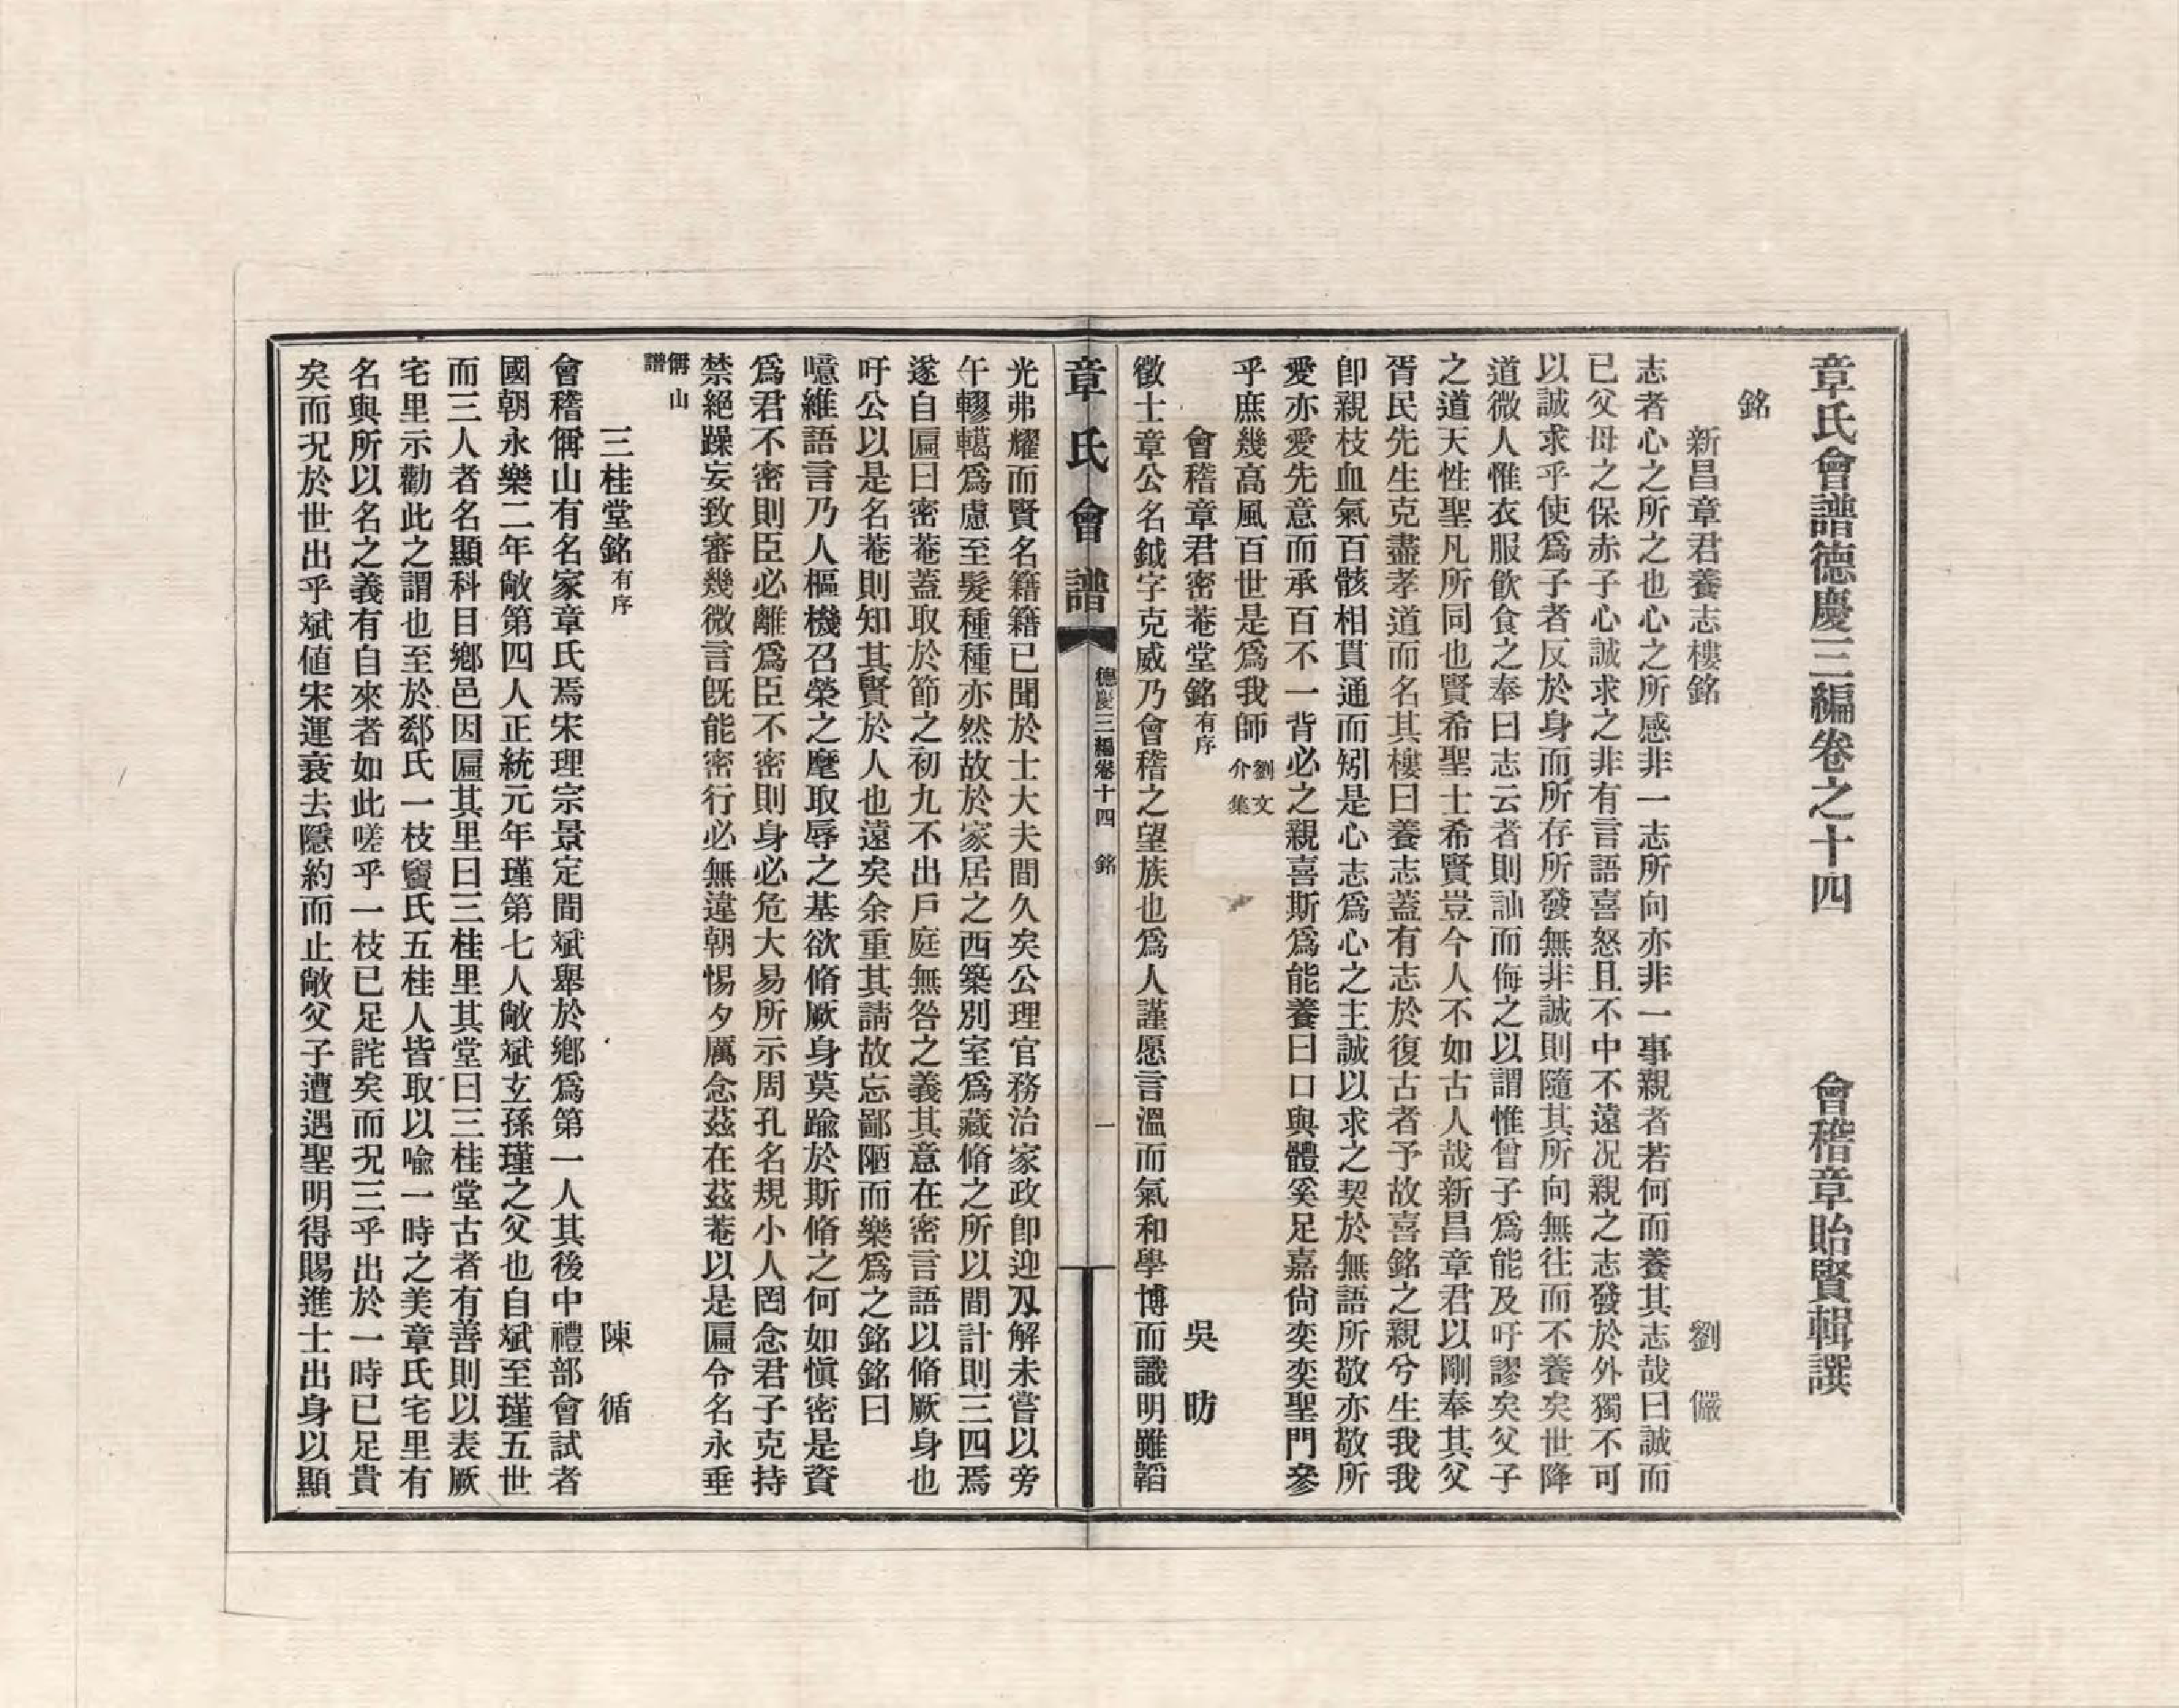 章氏會譜德慶三編卷之十四　會稽章貽賢輯譔
銘
新昌章君養志樓銘　劉儼
志者心之所之也心之所感非一志所向亦非一事親者若何而養其志哉曰誠而
已父母之保赤子心誠求之非有言語喜怒且不中不遠況親之志發於外獨不可
以誠求乎使爲子者反於身而所存所發無非誠則隨其所向無往而不養矣世降
道微人惟衣服飲食之奉曰志云者則訕而侮之以謂惟曾子爲能及吁謬矣父子
之道天性聖凡所同也賢希聖士希賢豈今人不如古人哉新昌章君以剛奉其父
胥民先生克盡孝道而名其樓曰養志蓋有志於復古者予故喜銘之親兮生我我
卽親枝血氣百骸相貫通而矧是心志爲心之主誠以求之契於無語所敬亦敬所
愛亦愛先意而承百不一背必之親喜斯爲能養曰口與體奚足嘉尙奕奕聖門參
乎庶幾高風百世是爲我師劉文介集
會稽章君密菴堂銘有序　吳昉
徵士章公名鉞字克威乃會稽之望族也爲人謹愿言溫而氣和學博而識明雖韜
章氏會譜　德慶三編卷十四　銘　一
光弗耀而賢名籍籍已聞於士大夫間久矣公理官務治家政卽迎刃解未嘗以旁
午轇轕爲慮至髮種種亦然故於家居之西築別室爲藏脩之所以間計則三四焉
遂自匾曰密菴蓋取於節之初九不出戶庭無咎之義其意在密言語以脩厥身也
吁公以是名菴則知其賢於人也遠矣余重其請故忘鄙陋而樂爲之銘銘曰
噫維語言乃人樞機召榮之麾取辱之基欲脩厥身莫踰於斯脩之何如愼密是資
爲君不密則臣必離爲臣不密則身必危大易所示周孔名規小人罔念君子克持
禁絕躁妄致審幾微言旣能密行必無違朝惕夕厲念茲在茲菴以是匾令名永垂
偁山譜
三桂堂銘有序　陳循
會稽偁山有名家章氏焉宋理宗景定間斌舉於鄉爲第一人其後中禮部會試者
國朝永樂二年敞第四人正統元年瑾第七人敞斌玄孫瑾之父也自斌至瑾五世
而三人者名顯科目鄉邑因匾其里曰三桂里其堂曰三桂堂古者有善則以表厥
宅里示勸此之謂也至於郄氏一枝竇氏五桂人皆取以喻一時之美章氏宅里有
名與所以名之義有自來者如此嗟乎一枝已足詫矣而況三乎出於一時已足貴
矣而況於世出乎斌値宋運衰去隱約而止敞父子遭遇聖明得賜進士出身以顯